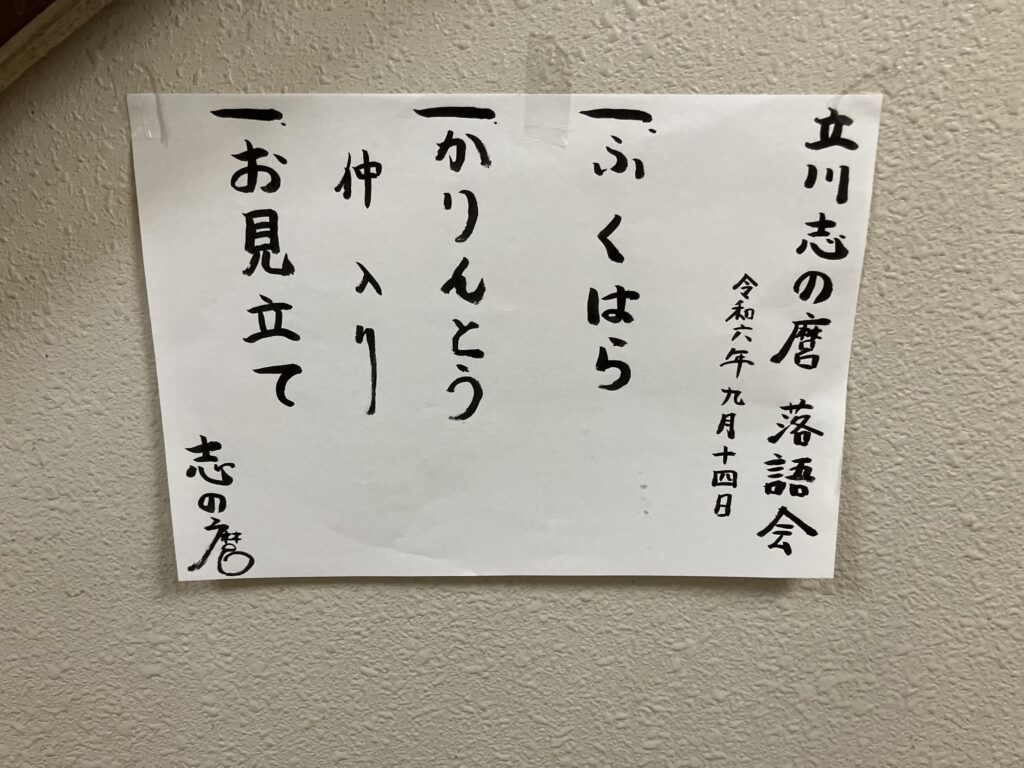 立川志の麿 落語会
令和六年 九月十四日
一、ぷくはら
一、かりんとう
仲入り
一、お見立て
志の麿